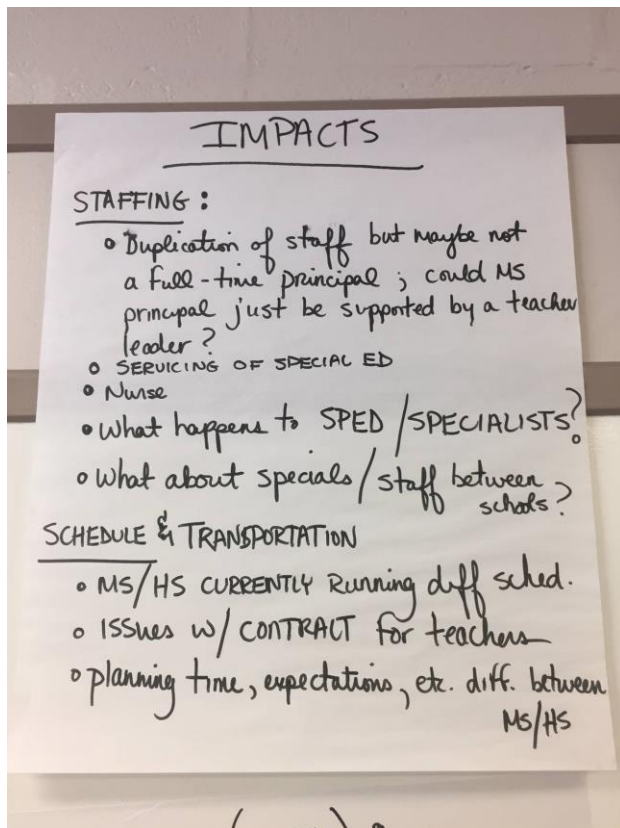 IMPACTS
STAFFING:
• Duplication of staff but maybe not
a full-time principal; could MS
principal just be supported by a teacher
leader?
• SERVICING OF SPECIAL ED
• Nurse
• What happens to SPED/SPECIALISTS?
• What about specials/staff between
schools?
SCHEDULE & TRANSPORTATION
• MS/HS CURRENTLY Running diff sched.
• ISSues w/ CONTRACT for teachers
• planning time, expectations, etc. diff. between
MS/HS